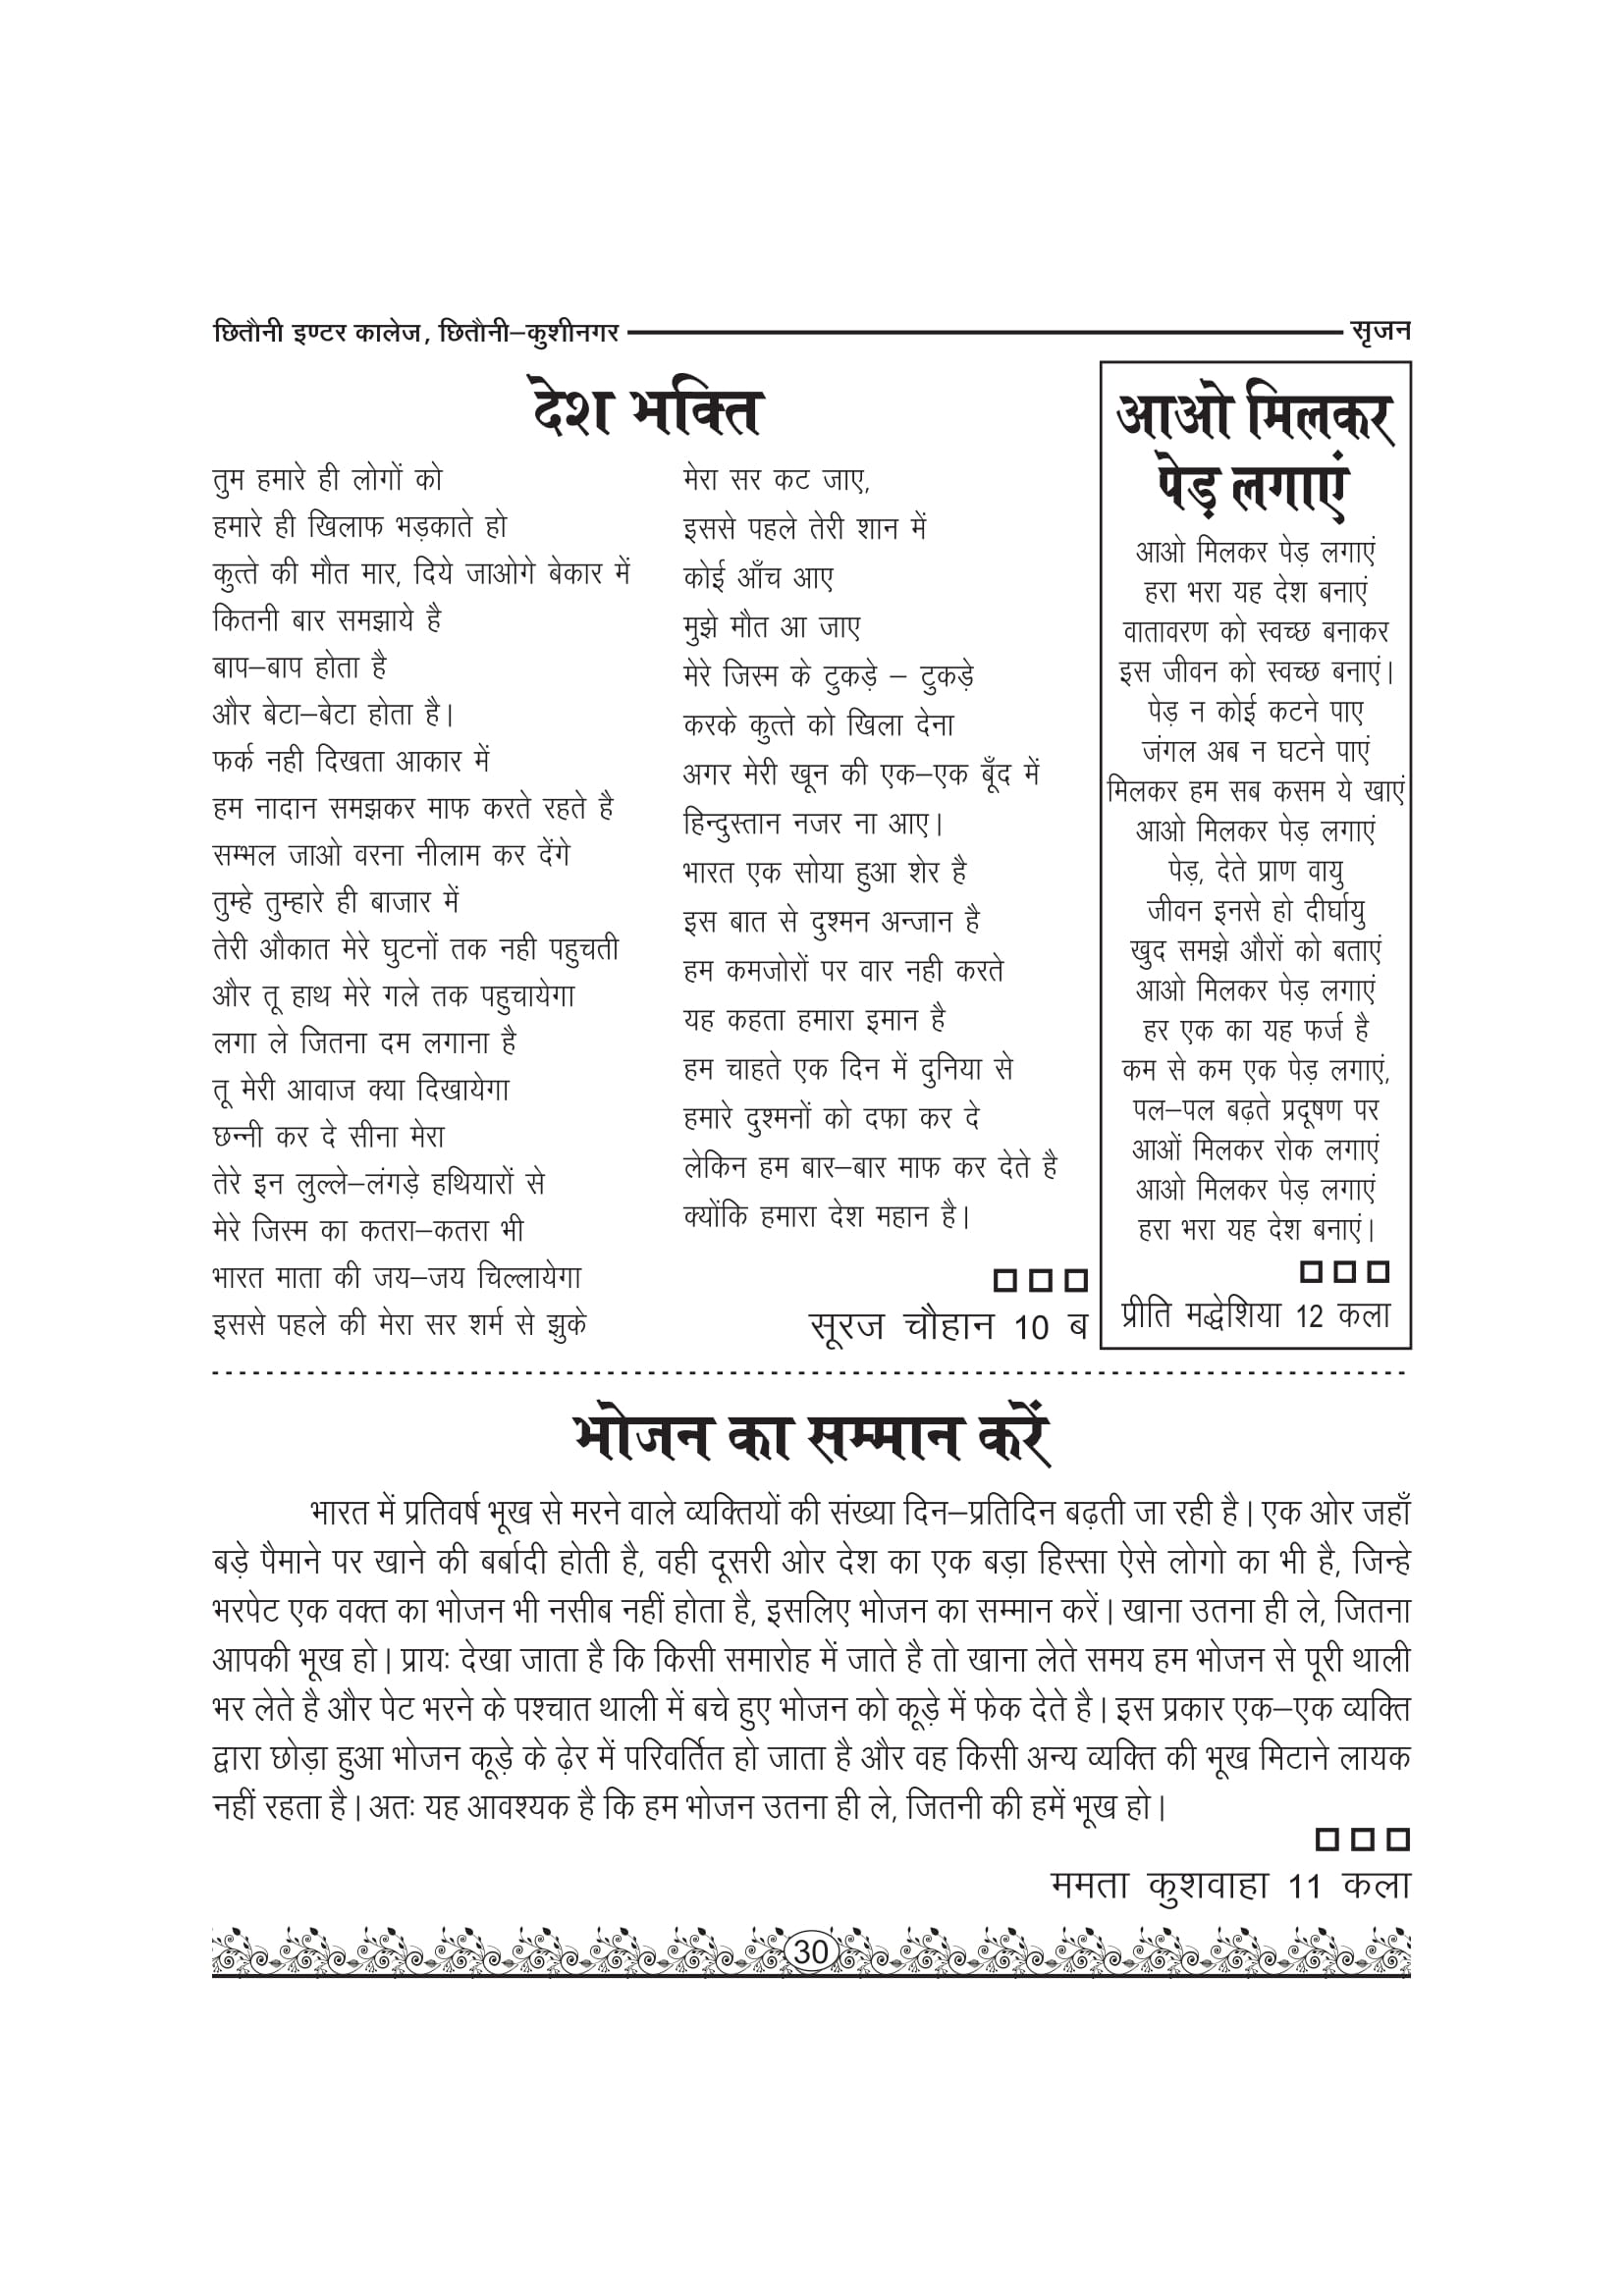 छितौनी इण्टर कालेज, छितौनी–कुशीनगर
सृजन
देश भक्ति
तुम हमारे ही लोगों को
हमारे ही खिलाफ भड़काते हो
कुत्ते की मौत मार, दिये जाओगे बेकार में
कितनी बार समझाये है
बाप–बाप होता है
और बेटा–बेटा होता है।
फर्क नही दिखता आकार में
हम नादान समझकर माफ करते रहते है
सम्भल जाओ वरना नीलाम कर देंगे
तुम्हे तुम्हारे ही बाजार में
तेरी औकात मेरे घुटनों तक नही पहुचती
और तू हाथ मेरे गले तक पहुचायेगा
लगा ले जितना दम लगाना है
तू मेरी आवाज क्या दिखायेगा
छन्नी कर दे सीना मेरा
तेरे इन लुल्ले–लंगड़े हथियारों से
मेरे जिस्म का कतरा–कतरा भी
भारत माता की जय–जय चिल्लायेगा
इससे पहले की मेरा सर शर्म से झुके
मेरा सर कट जाए,
इससे पहले तेरी शान में
कोई आँच आए
मुझे मौत आ जाए
मेरे जिस्म के टुकड़े – टुकड़े
करके कुत्ते को खिला देना
अगर मेरी खून की एक–एक बूँद में
हिन्दुस्तान नजर ना आए।
भारत एक सोया हुआ शेर है
इस बात से दुश्मन अन्जान है
हम कमजोरों पर वार नही करते
यह कहता हमारा इमान है
हम चाहते एक दिन में दुनिया से
हमारे दुश्मनों को दफा कर दे
लेकिन हम बार–बार माफ कर देते है
क्योंकि हमारा देश महान है।
सूरज चौहान 10 ब
आओ मिलकर
पेड़ लगाएं
आओ मिलकर पेड़ लगाएं
हरा भरा यह देश बनाएं
वातावरण को स्वच्छ बनाकर
इस जीवन को स्वच्छ बनाएं।
पेड़ न कोई कटने पाए
जंगल अब न घटने पाएं
मिलकर हम सब कसम ये खाएं
आओ मिलकर पेड़ लगाएं
पेड़, देते प्राण वायु
जीवन इनसे हो दीर्घायु
खुद समझे औरों को बताएं
आओ मिलकर पेड़ लगाएं
हर एक का यह फर्ज है
कम से कम एक पेड़ लगाएं,
पल–पल बढ़ते प्रदूषण पर
आओं मिलकर रोक लगाएं
आओ मिलकर पेड़ लगाएं
हरा भरा यह देश बनाएं।
प्रीति मद्धेशिया 12 कला
भोजन का सम्मान करें
भारत में प्रतिवर्ष भूख से मरने वाले व्यक्तियों की संख्या दिन–प्रतिदिन बढ़ती जा रही है। एक ओर जहाँ
बड़े पैमाने पर खाने की बर्बादी होती है, वही दूसरी ओर देश का एक बड़ा हिस्सा ऐसे लोगो का भी है, जिन्हे
भरपेट एक वक्त का भोजन भी नसीब नहीं होता है, इसलिए भोजन का सम्मान करें। खाना उतना ही ले, जितना
आपकी भूख हो। प्रायः देखा जाता है कि किसी समारोह में जाते है तो खाना लेते समय हम भोजन से पूरी थाली
भर लेते है और पेट भरने के पश्चात थाली में बचे हुए भोजन को कूड़े में फेक देते है। इस प्रकार एक–एक व्यक्ति
द्वारा छोड़ा हुआ भोजन कूड़े के ढ़ेर में परिवर्तित हो जाता है और वह किसी अन्य व्यक्ति की भूख मिटाने लायक
नहीं रहता है। अतः यह आवश्यक है कि हम भोजन उतना ही ले, जितनी की हमें भूख हो।
ममता कुशवाहा 11 कला
30